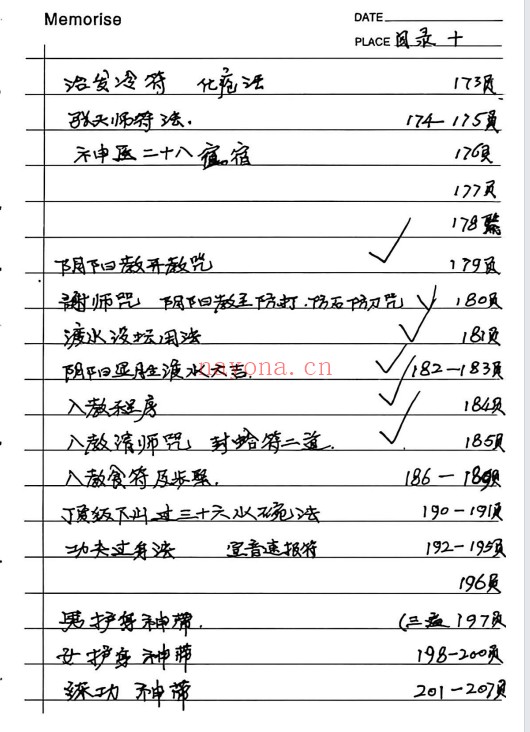 Memorise
DATE
PLACE 目录 十
治发冷符 化疮法 173页
张天师符法. 174-175页
神医二十八宿 宿 176页
177页
178页
阴阳教开教咒 179页
谢师咒 阴阳教主防打.防石防刀咒 180页
渡水设坛用法 181页
阴阳 渡水 182-183页
入教程序 184页
入教请师咒 封 符二道. 185页
入教食符及步聚. 186-189页
顶级下山过三十六水碗法 190-191页
功夫过身法 速报符 192-195页
196页
男护身神带. (三 197页
女护身神带 198-200页
练功神带 201-207页
nayona.cn